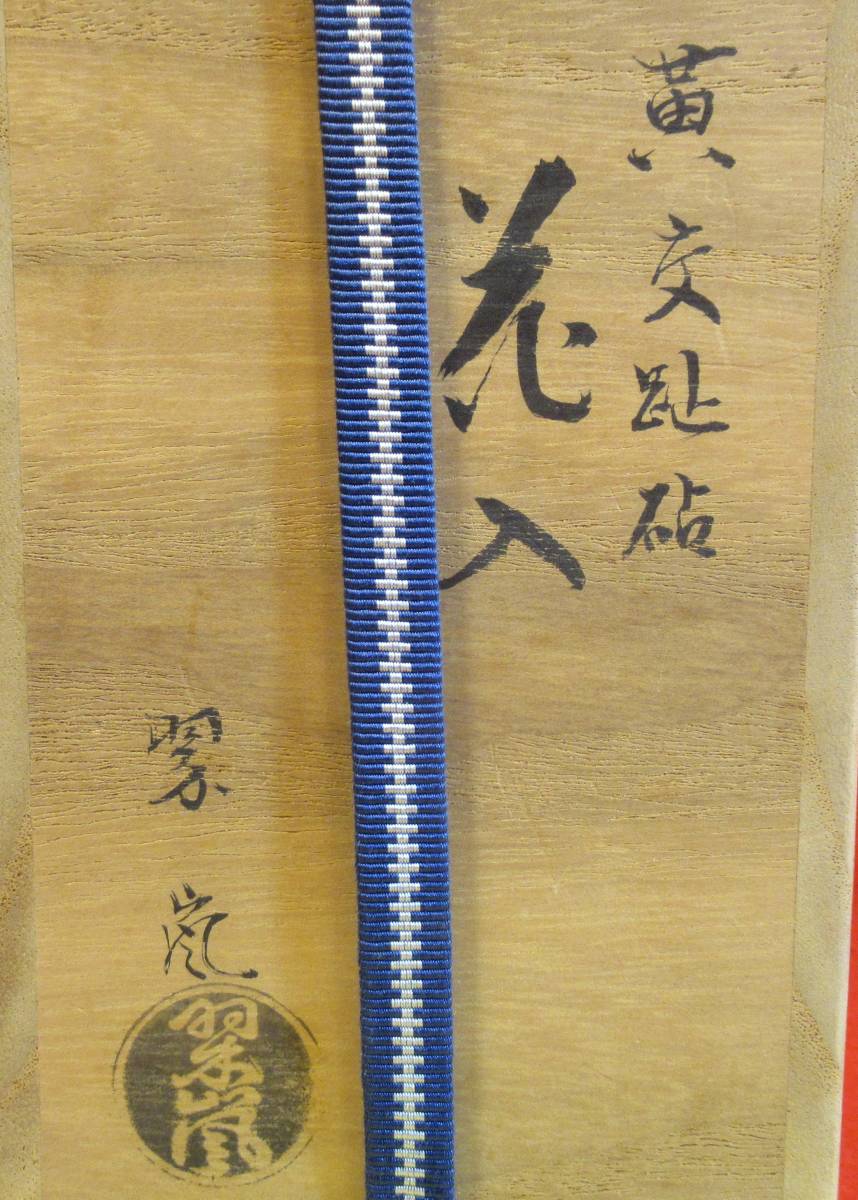 黄交趾砧
花入
翠嵐
翠嵐